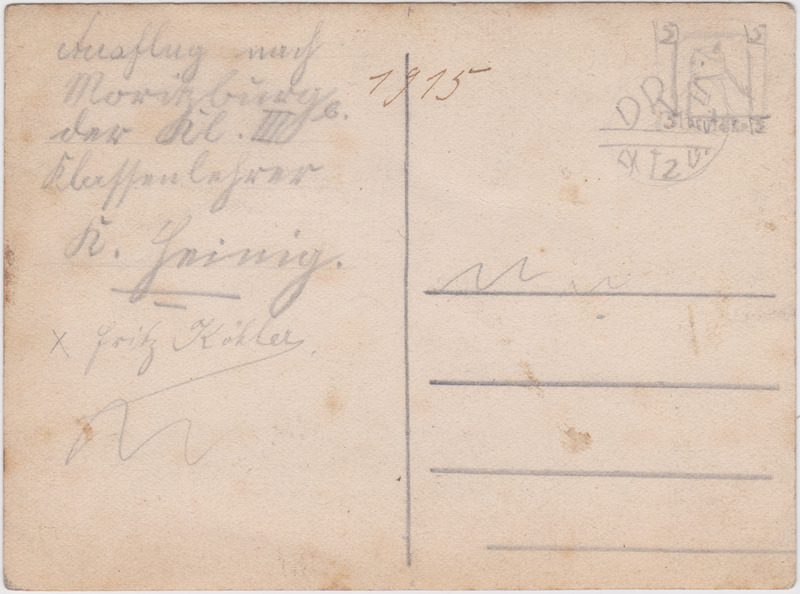 Ausflug nach
Moritzburg
der Kl. III b.
Klassenlehrer
K. Heinig.
x Fritz Köhler.
1915
5 5
DR
5 5